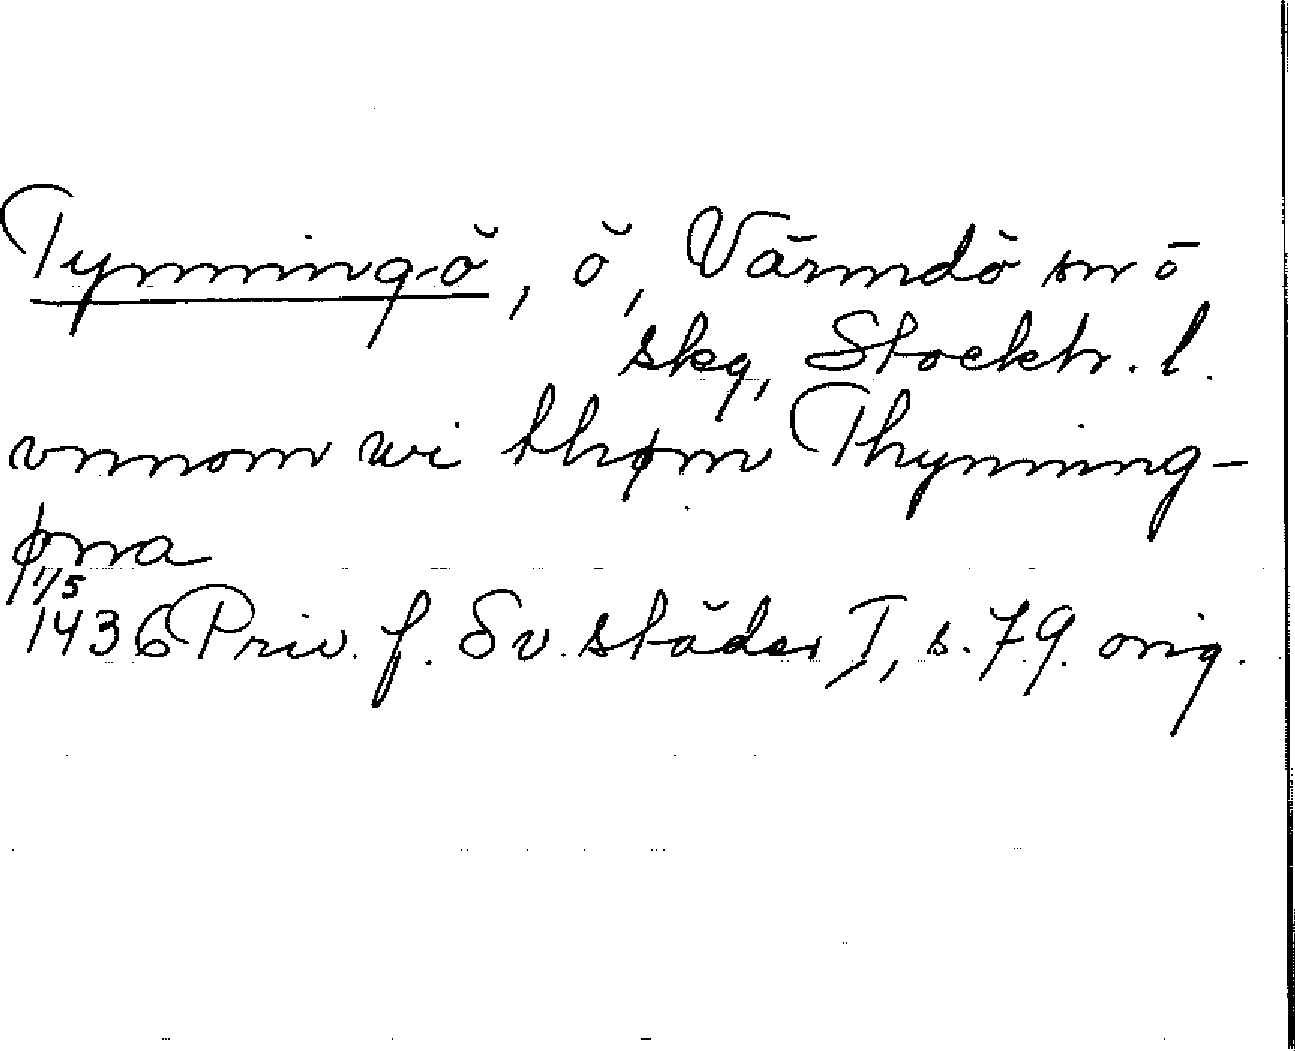 Tynning-ö, ö, Värmdö sn ö
skg, Stockh. l.
vnnom wi thøm Thynning-
øna
1/5
1436 Priv. f. Sv. städer I, s. 79. orig.